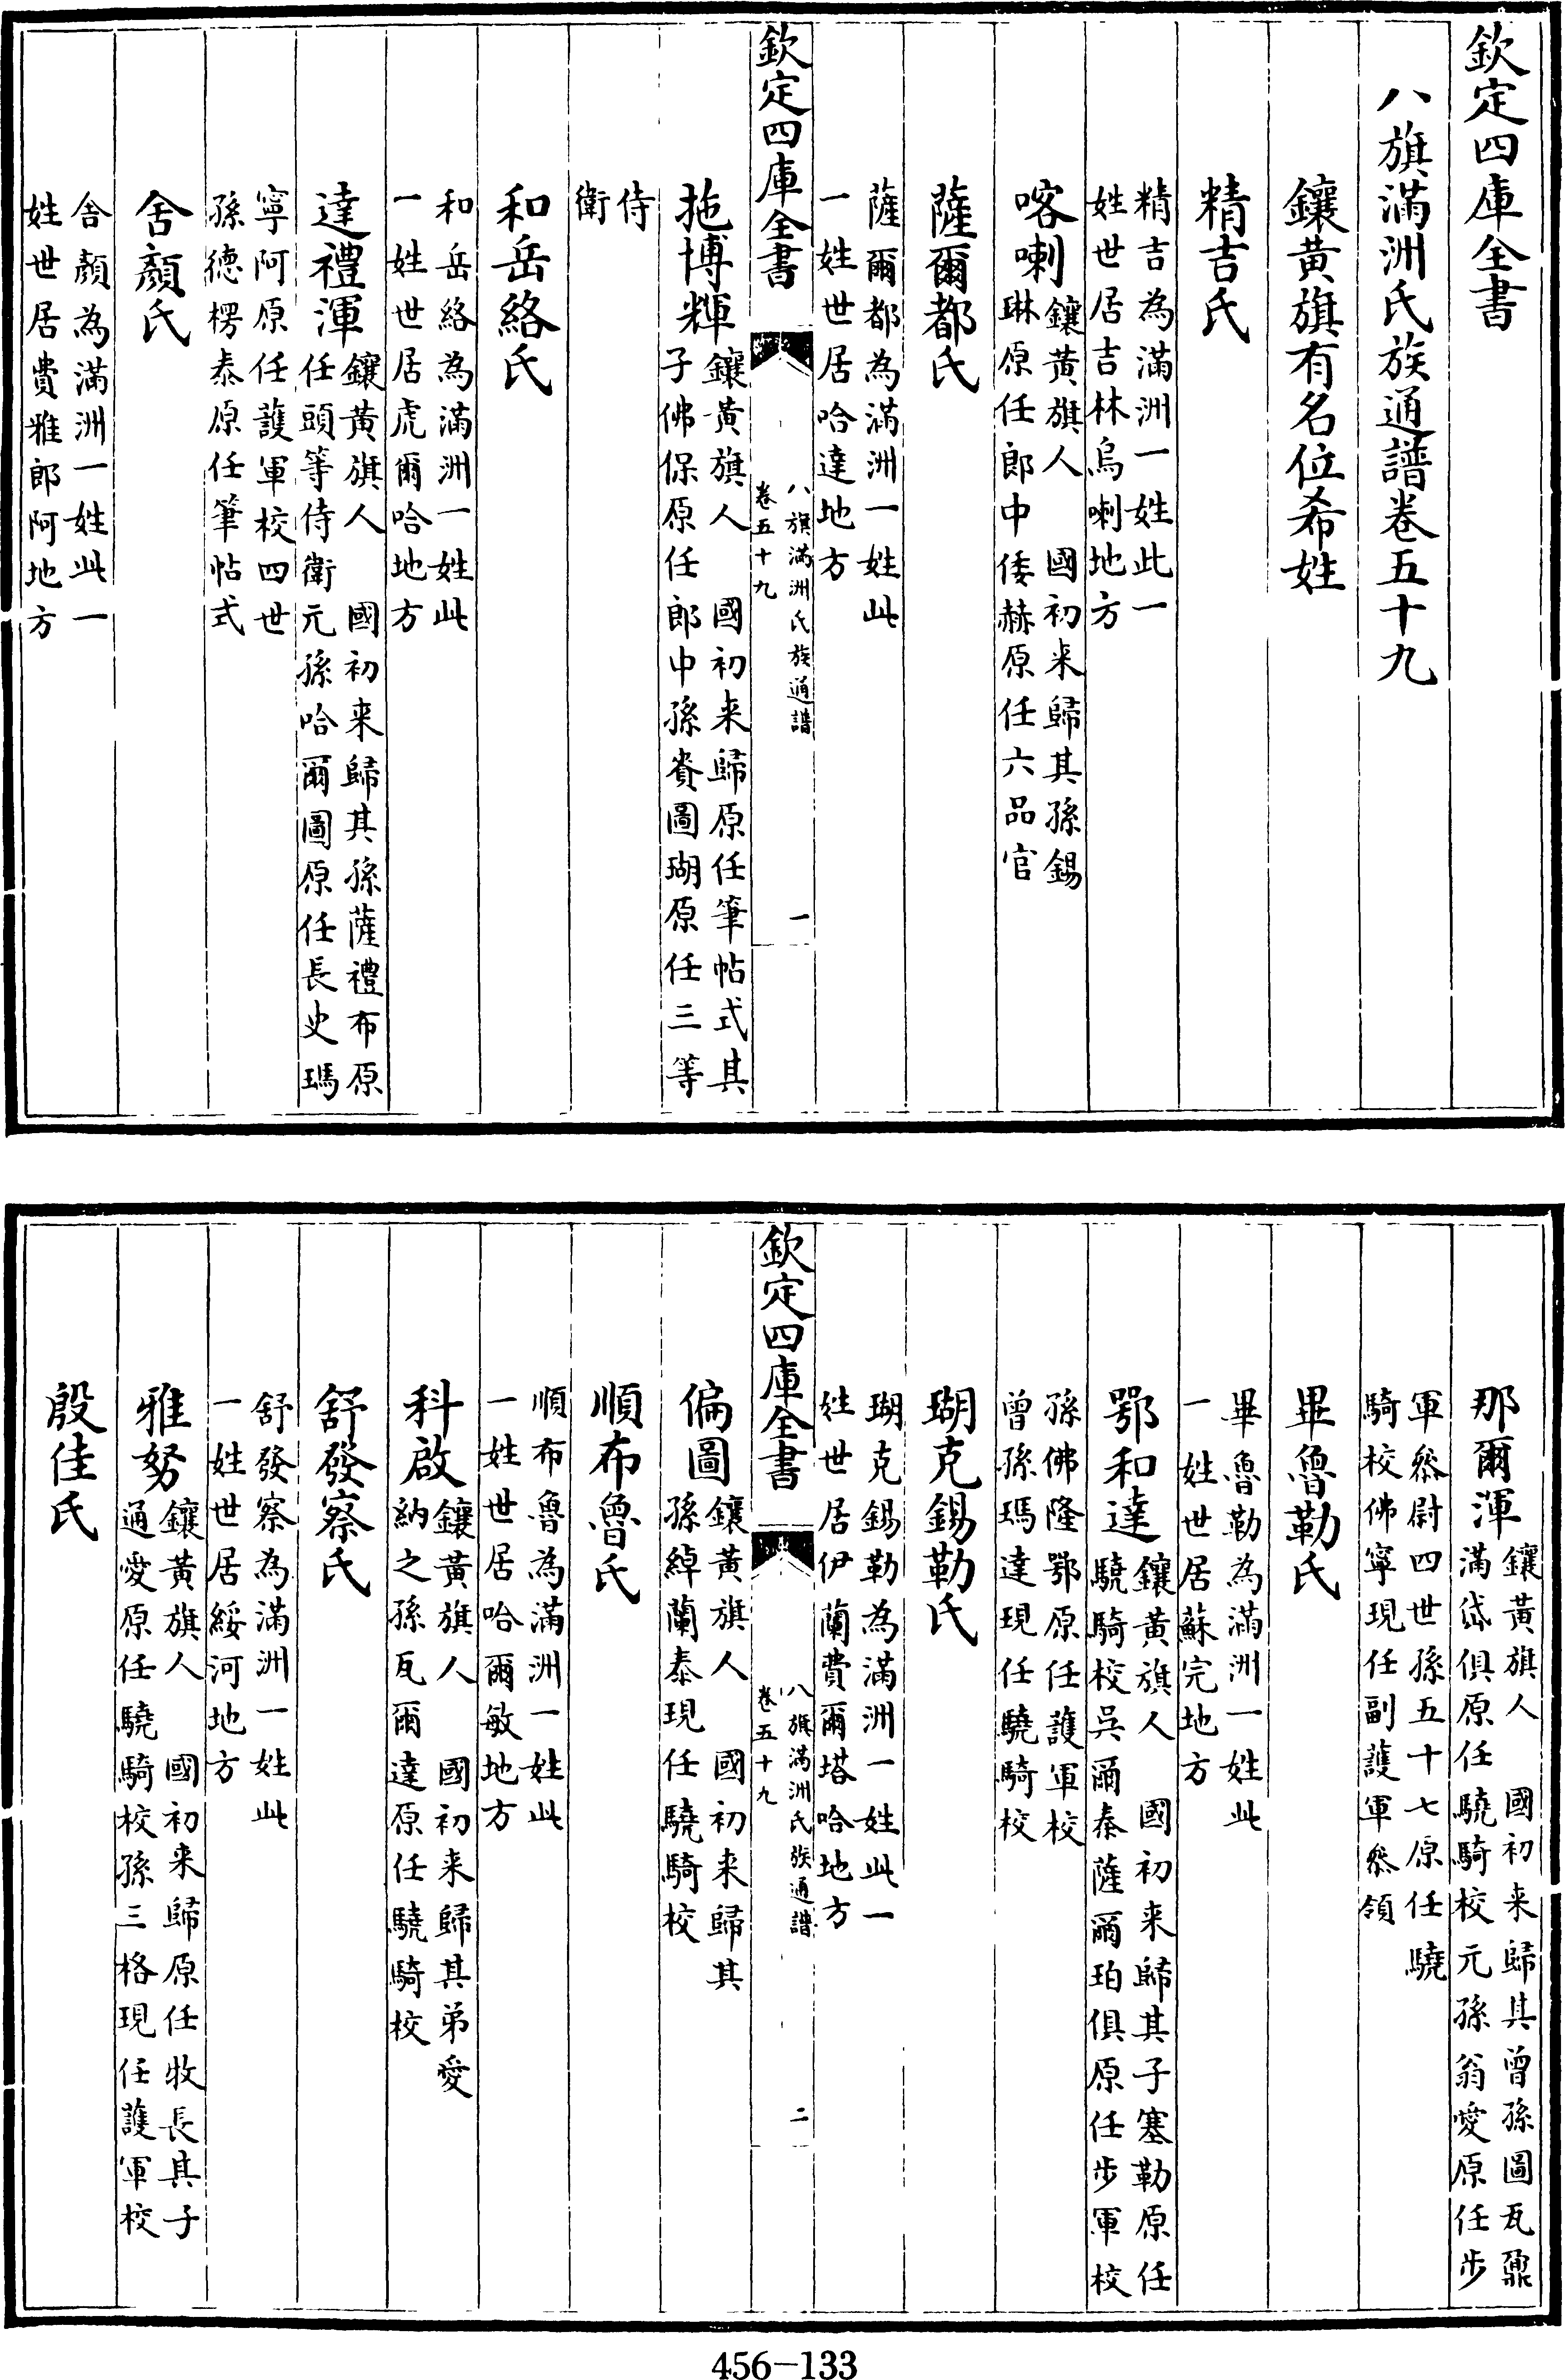 欽定四庫全書
八旗滿洲氏族通譜卷五十九
鑲黃旗有名位希姓
精吉氏
精吉為滿洲一姓此一
姓世居吉林烏喇地方
喀喇
鑲黃旗人 國初来歸其孫錫
琳原任郎中倭赫原任六品官
薩爾都氏
薩爾都為滿洲一姓此
一姓世居哈達地方
欽定四庫全書
八旗滿洲氏族通譜
卷五十九
一
拖博輝
鑲黃旗人 國初来歸原任筆帖式其
子佛保原任郎中孫賚圖瑚原任三等
侍
衛
和岳絡氏
和岳絡為滿洲一姓此
一姓世居虎爾哈地方
達禮渾
鑲黃旗人 國初来歸其孫薩禮布原
任頭等侍衛元孫哈爾圖原任長史瑪
寧阿原任護軍校四世
孫德楞泰原任筆帖式
舍顏氏
舍顏為滿洲一姓此一
姓世居費雅郎阿地方
那爾渾
鑲黃旗人 國初来歸其曾孫圖瓦鼐
滿岱俱原任驍騎校元孫翁愛原任步
軍叅尉四世孫五十七原任驍
騎校佛寧現任副護軍叅領
畢魯勒氏
畢魯勒為滿洲一姓此
一姓世居蘇完地方
鄂和達
鑲黃旗人 國初来歸其子塞勒原任
驍騎校吳爾泰薩爾珀俱原任步軍校
孫佛隆鄂原任護軍校
曾孫瑪達現任驍騎校
瑚克錫勒氏
瑚克錫勒為滿洲一姓此一
姓世居伊蘭費爾塔哈地方
欽定四庫全書
八旗滿洲氏族通譜
卷五十九
二
偏圖
鑲黃旗人 國初来歸其
孫綽蘭泰現任驍騎校
順布魯氏
順布魯為滿洲一姓此
一姓世居哈爾敏地方
科啟
鑲黃旗人 國初来歸其弟愛
納之孫瓦爾達原任驍騎校
舒發察氏
舒發察為滿洲一姓此
一姓世居綏河地方
雅努
鑲黃旗人 國初来歸原任牧長其子
通愛原任驍騎校孫三格現任護軍校
殷佳氏
456-133